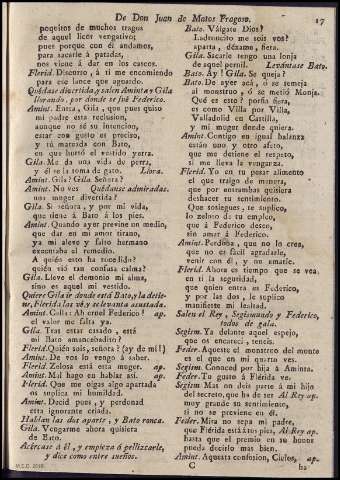 De Don Juan de Matos Fragoso. 17
poquitos de muchos tragos
de aquel licor vengativo;
pues porque con él andamos,
para sacarle á patadas,
nos viene á dar en los cascos.
Flerid. Discurro, á tí me encomiendo
para ese lance que aguardo.
Quédase divertida, y salen Aminta y Gila
llorando, por donde se fué Federico.
Amint. Entra, Gila, que pues quiso
mi padre esta reclusion,
aunque no sé su intencion,
estar con gusto es preciso,
y tú matada con Bato,
en que hurtó el vestido yerra.
Gila. Me da una vida de perra,
y él se la toma de gato. Llora.
Amint. Gila? Gila. Señora?
Amint. No ves Quédanse admiradas.
una muger divertida?
Gila. Sí señora, y por mi vida,
que tiene á Bato á los pies.
Amint. Quando ayer previne un medio,
que dar en mi amor tirano,
ya mi aleve y falso hermano
executaba el remedio.
A quién esto ha sucedido?
quién vió tan confusa calma?
Gila. Lleve el demonio mi alma,
sino es aquel mi vestido.
Quiere Gila ir donde está Bato, y la detiene,
Flerida las vé, y se levanta asustada.
Amint. Calla: Ah cruel Federico! ap.
el valor me falta ya.
Gila. Tras estar casado, está
mi Bato amancebadito?
Flerid. Quién sois, señora? (ay de mí!)
Amint. De vos lo vengo á saber.
Flerid. Zelosa está esta muger. ap.
Amint. Mal hago en hablar así. ap.
Flerid. Que me oigas algo apartada
os suplica mi humildad.
Amint. Decid pues, y perdonad
esta ignorancia criada.
Hablan las dos aparte, y Bato ronca.
Gila. Vengarme ahora quisiera
de Bato.
Acércase á él, y empieza á pellizcarle,
y dice como entre sueños.
Bato. Válgate Dios?
Ladroncito me sois vos?
aparta, déxame, fiera.
Gila. Sacarle tengo una lonja
de aquel pernil. Levántase Bato.
Bato. Ay! Gila. Se queja?
Bato. De ayer acá, ó se semeja
al monstruo, ó se metió Monja.
Qué es esto? porfia fiera,
es como Villa por Villa,
Valladolid en Castilla,
y mi muger donde quiera.
Amint. Contigo en igual balanza
están uno y otro afeto,
que me detiene el respeto,
si me lleva la venganza.
Flerid. Yo en tu pesar alimento
el que traigo de manera,
que por entrambas quisiera
deshacer tu sentimiento.
Que sosiegues, te suplico,
lo zeloso de tu empleo,
que á Federico deseo,
sin amar á Federico.
Amint. Perdona, que no lo crea,
que no es facil agradarle,
venir con él, y no amarle.
Flerid. Ahora es tiempo que se vea
en tí la seguridad,
que quien entra es Federico,
y por las dos, le suplico
manifieste mi lealtad.
Salen el Rey, Segismundo y Federico,
todos de gala.
Segism. Ya delante aquel espejo,
que os encarecí, teneis.
Feder. Aqueste el monstruo del monte
es el que en mi quarto veis.
Segism. Conoced por hija á Aminta.
Feder. Tu gusto á Flérida ve.
Segism. Mas no deis parte á mi hijo
del secreto, que ha de ser Al Rey ap.
muy grande su sentimiento,
si no se previene en él.
Feder. Mira no sepa mi padre,
que Flérida está á tus pies, Al Rey ap.
hasta que el premio en su honor
pueda decirlo mas bien.
Amint. Aquesta confusion, Cielos, ap.
C ha
M.C.D. 2018